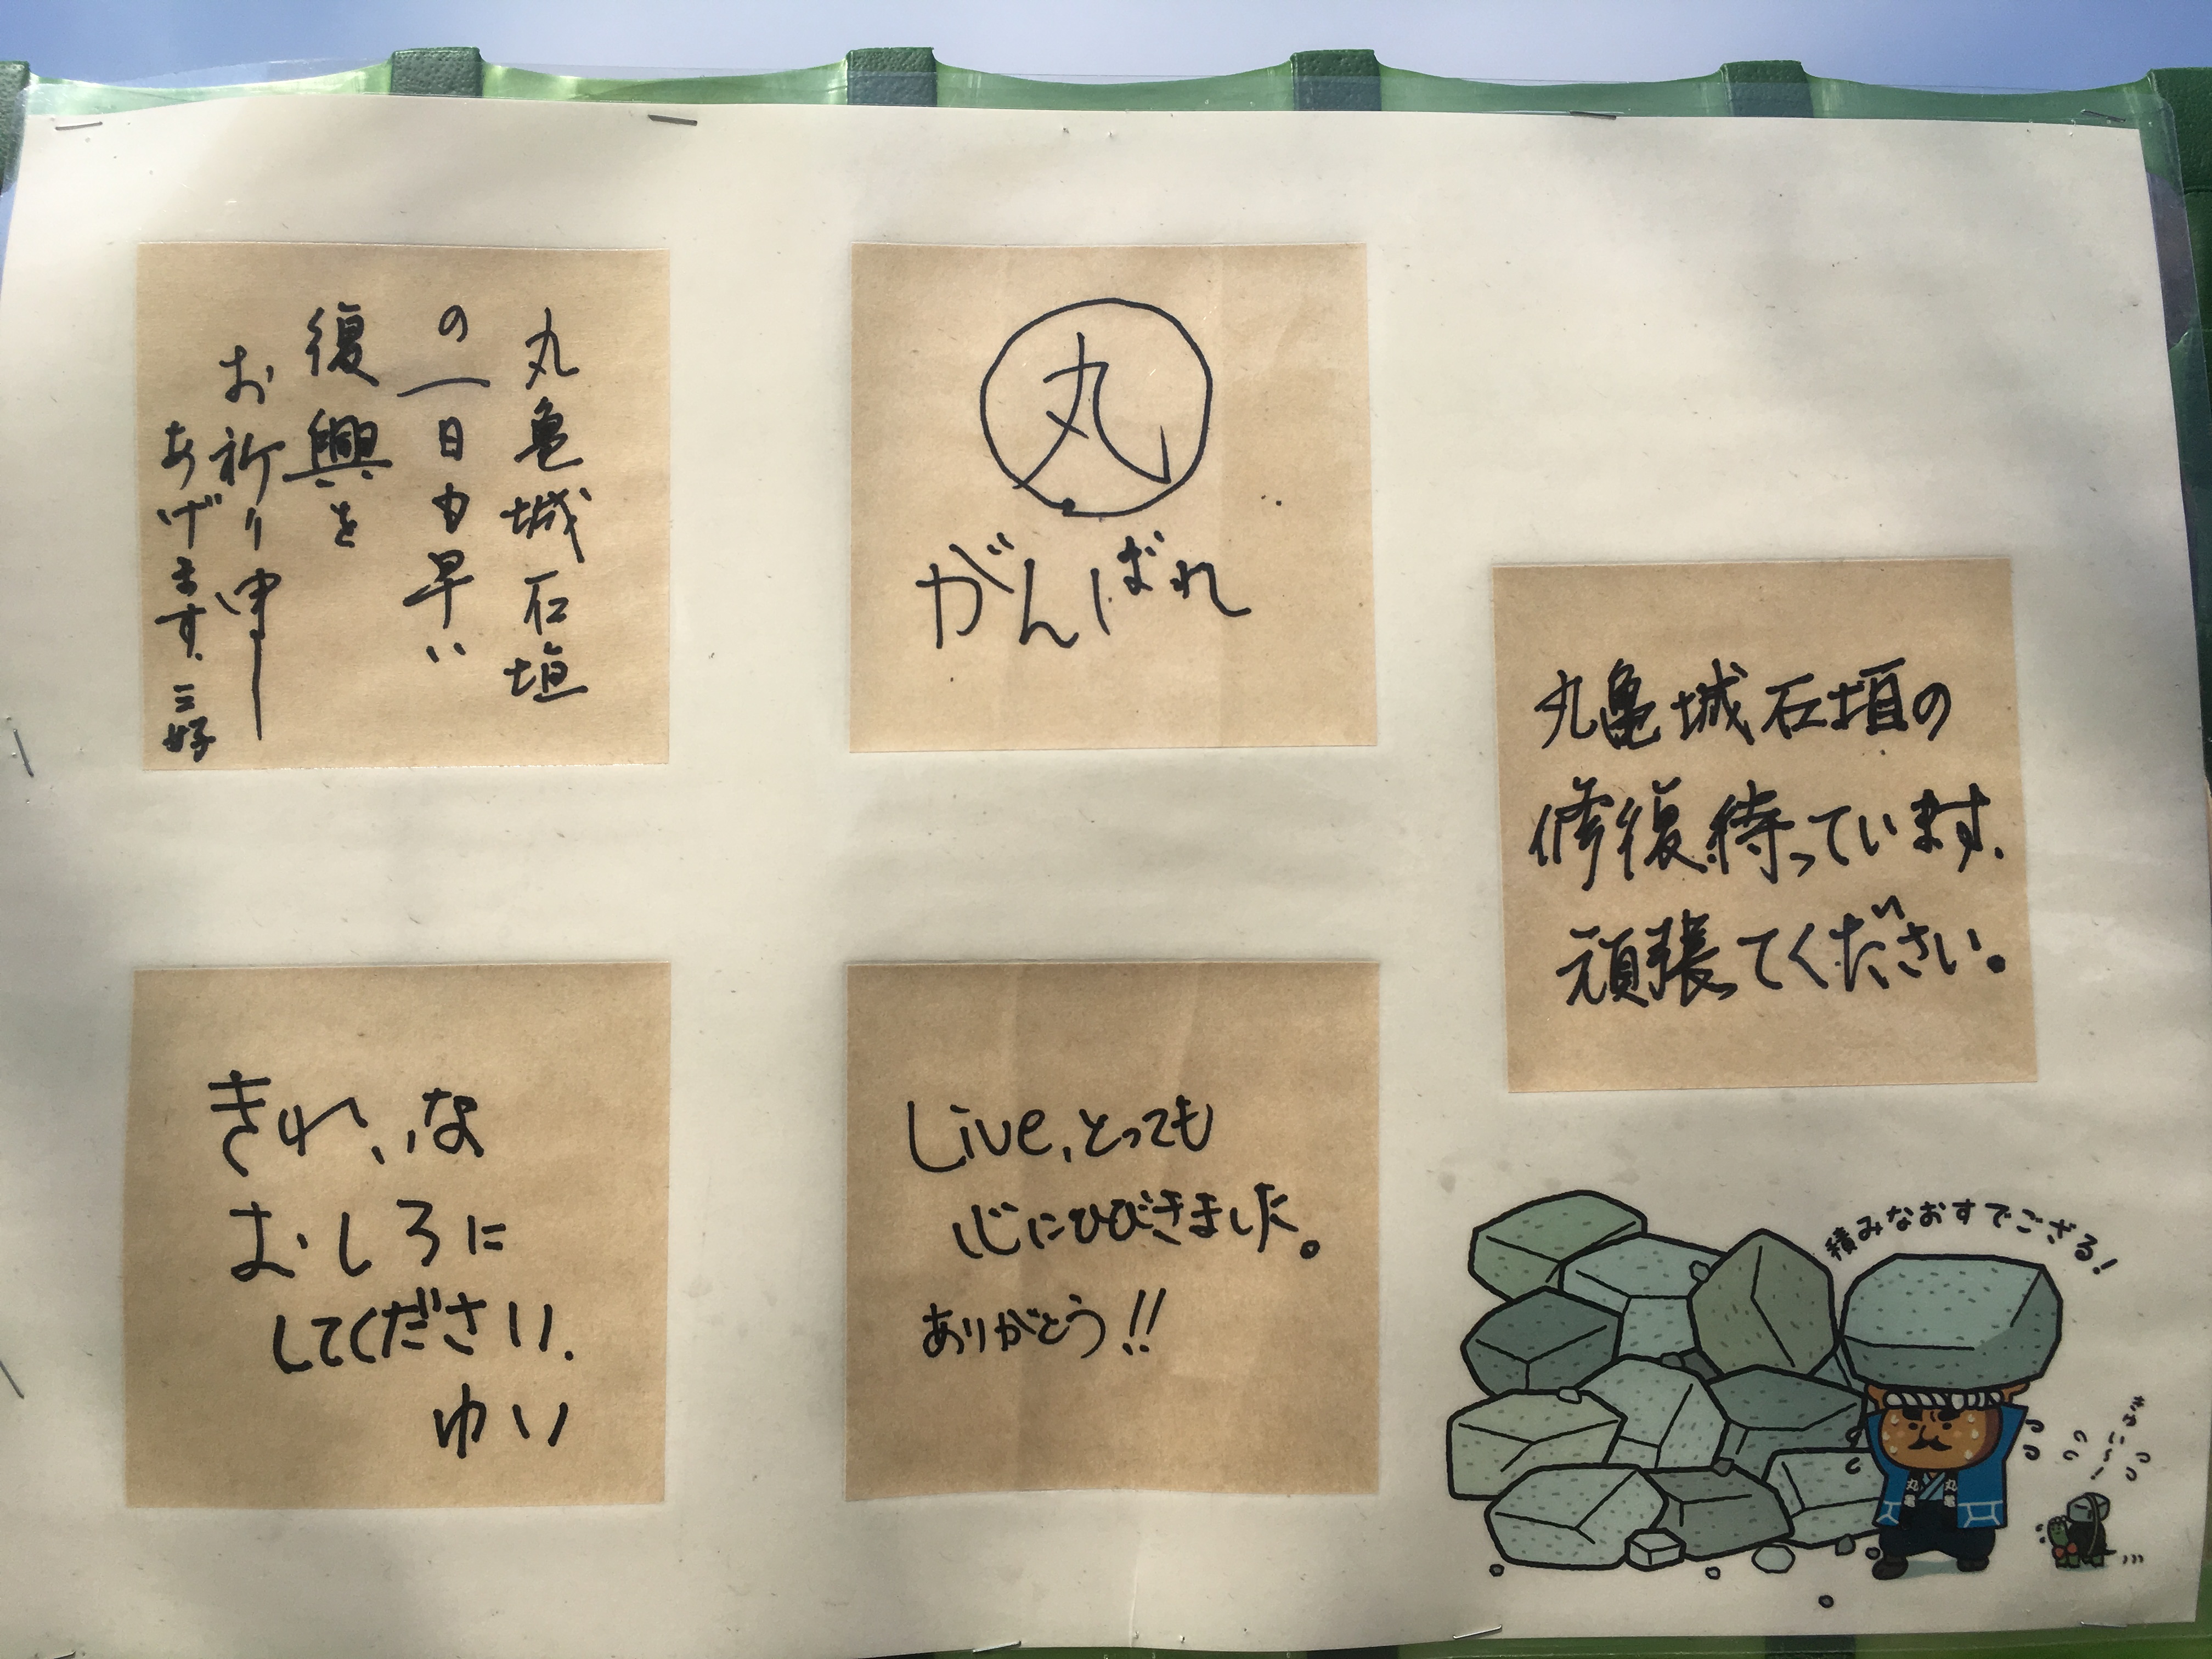 丸亀城石垣
の一日も早い
復興を
お祈り申し
あげます。三好
丸
がんばれ
丸亀城石垣の
修復待っています。
頑張ってください。
きれいな
おしろに
してください.
ゆい
Live,とっても
心にひびきました。
ありがとう!!
積みなおすでござる!
丸亀
丸亀